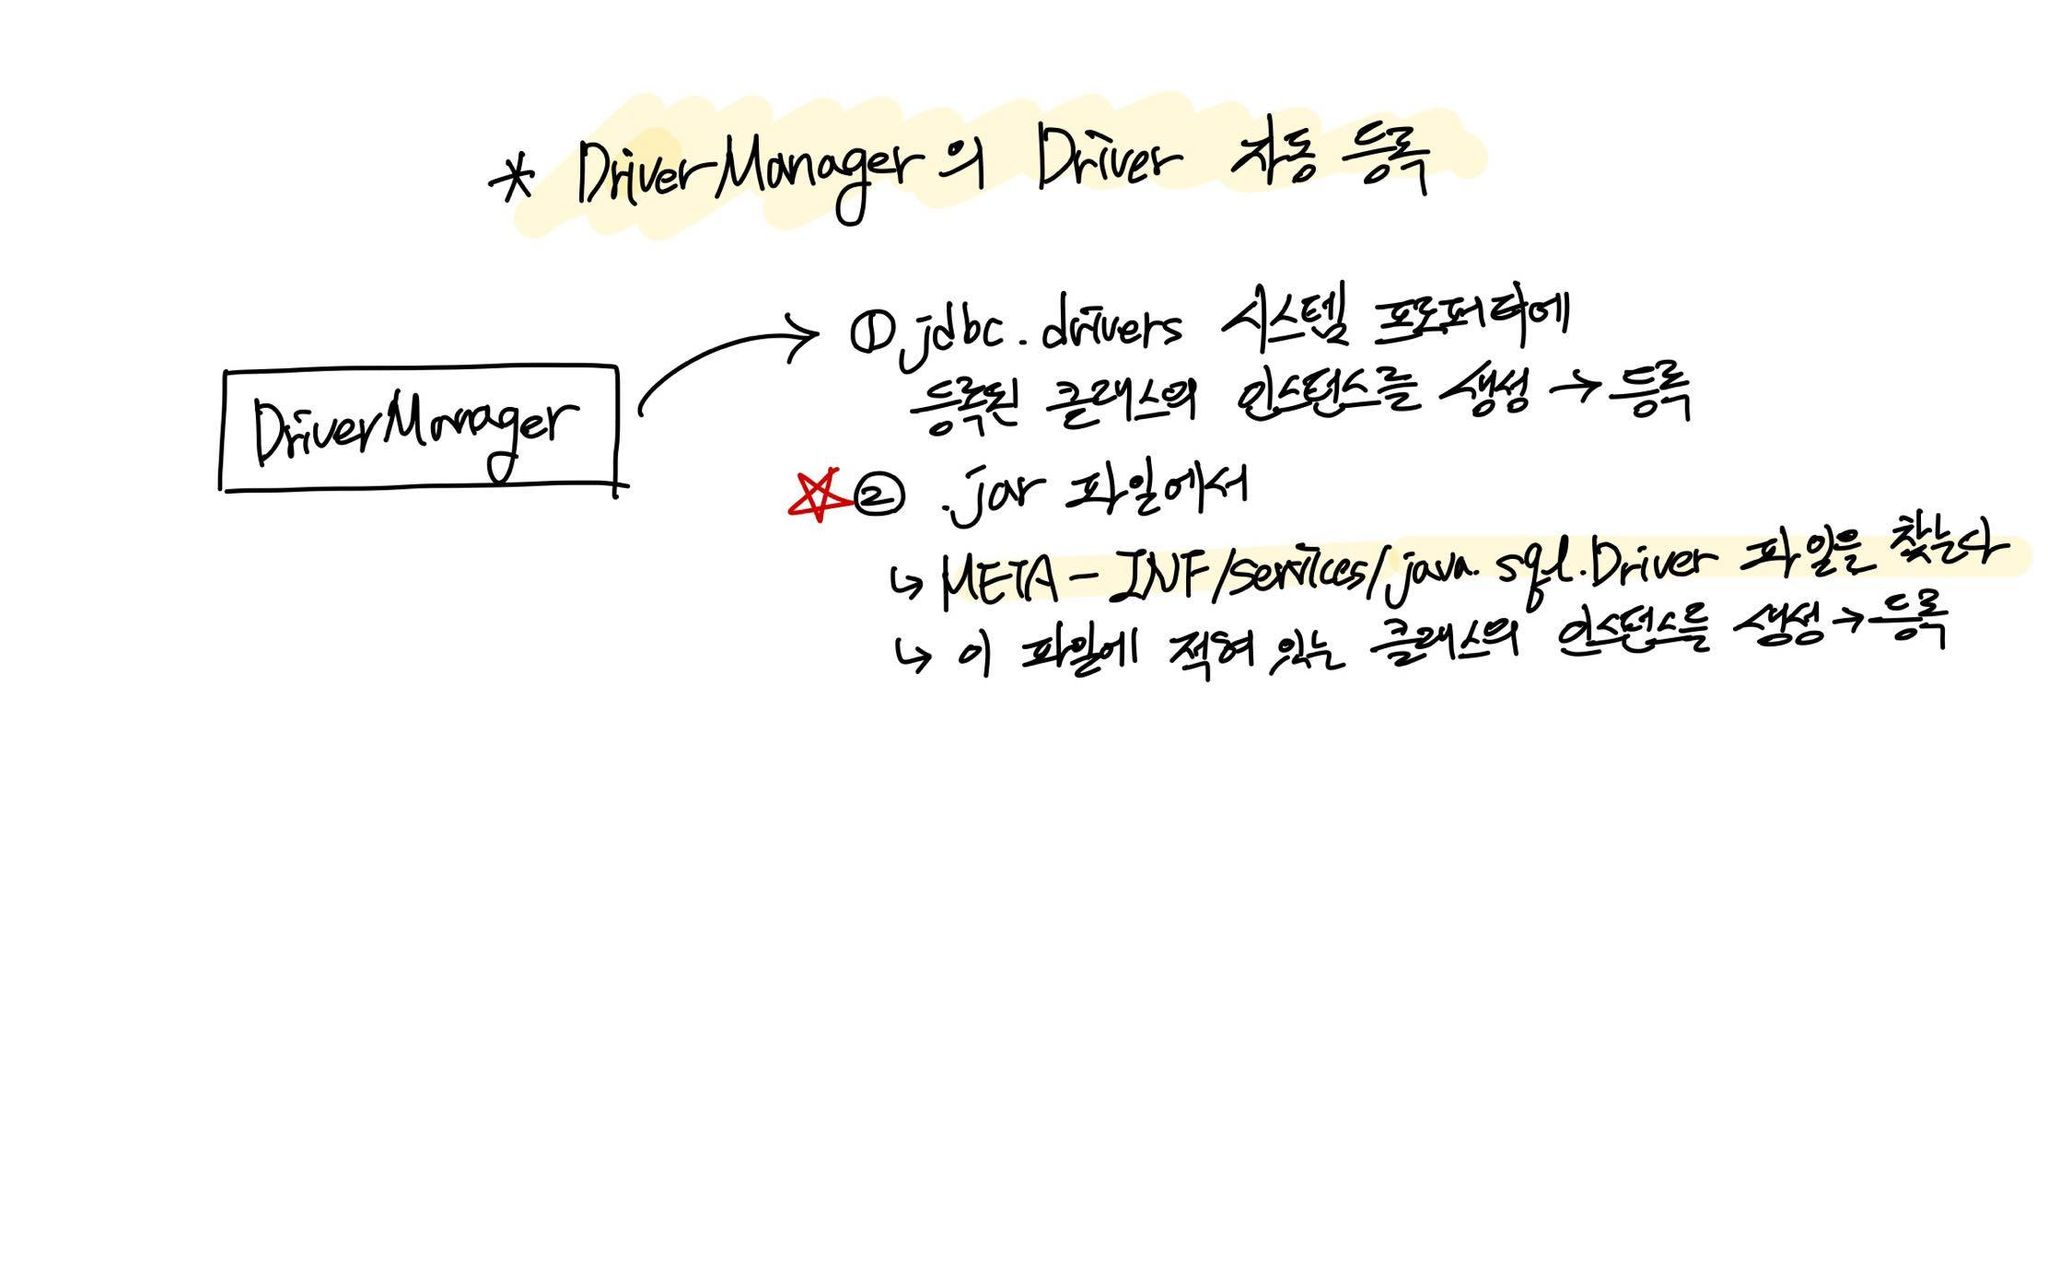 * DriverManager의 Driver 자동 등록
DriverManager
① jdbc.drivers 시스템 프로퍼티에
등록된 클래스의 인스턴스를 생성 → 등록
② .jar 파일에서
↳ META-INF/services/java.sql.Driver 파일을 찾는다
↳ 이 파일에 적혀 있는 클래스의 인스턴스를 생성 → 등록